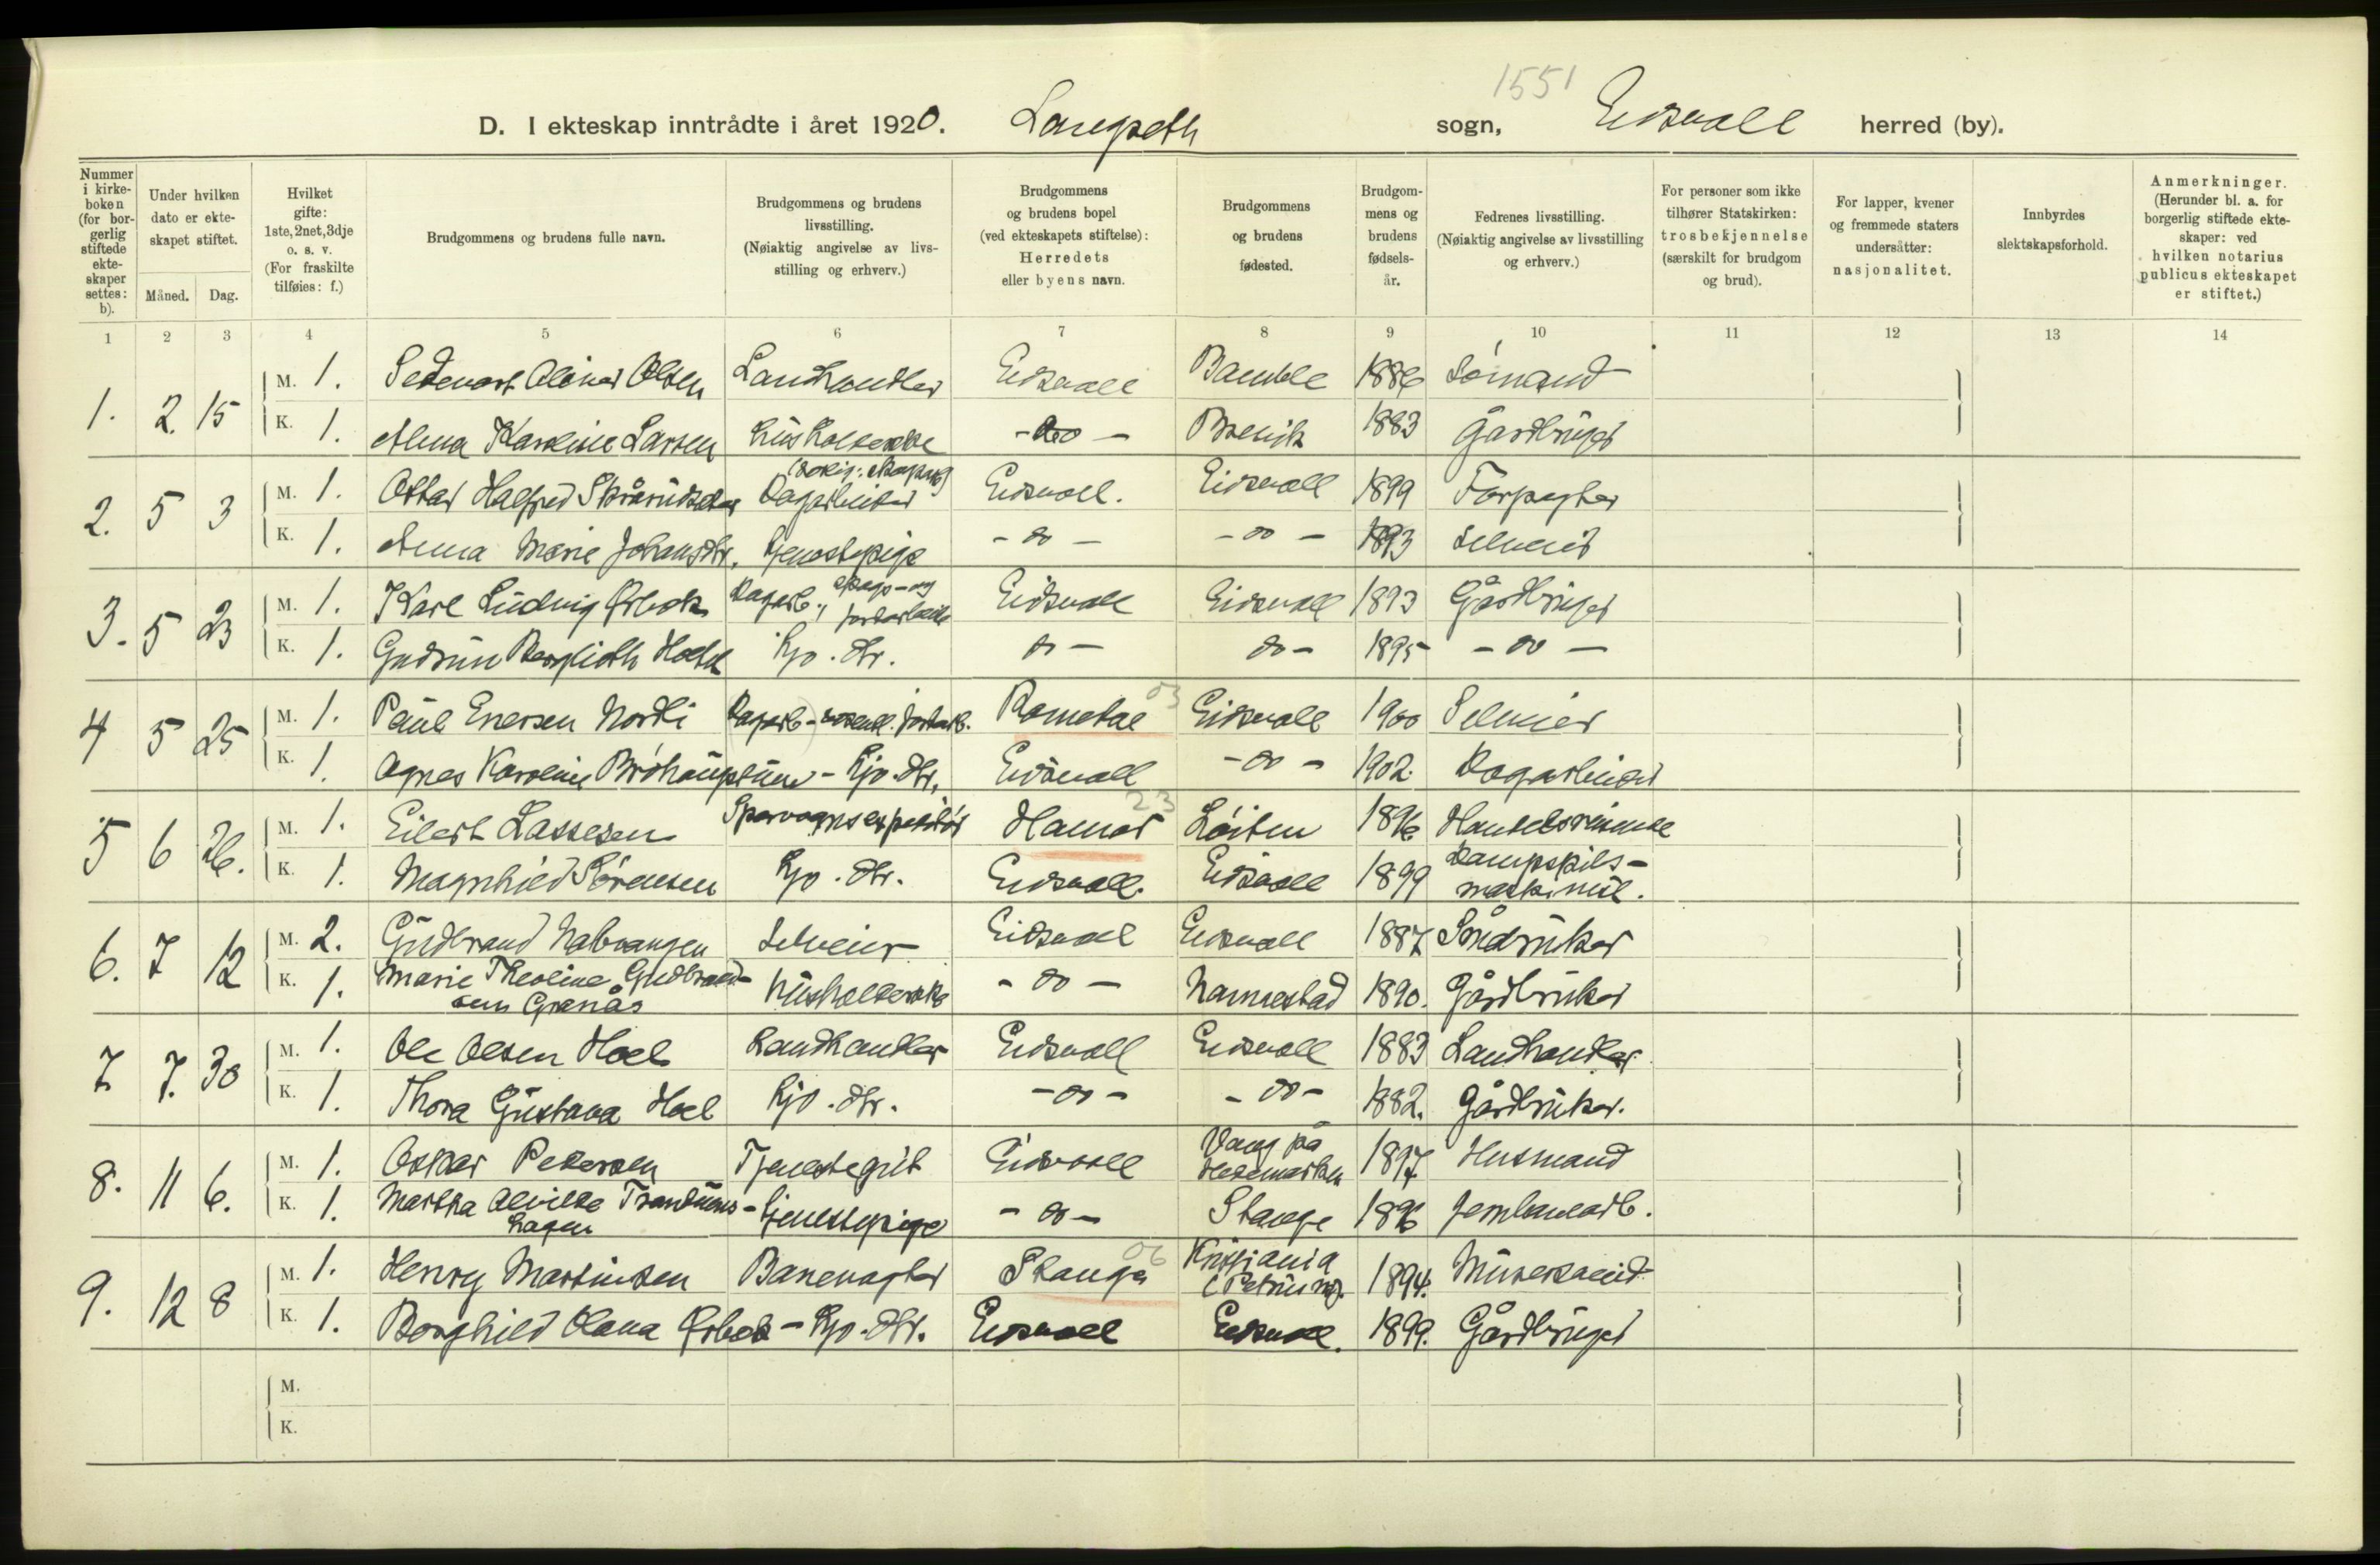 1551
D. I ekteskap inntrådte i året 1920. Langseth sogn, Eidsvoll herred (by).
Nummer i kirkeboken (for borgerlig stiftede ekteskaper settes: b).
Under hvilken dato er ekteskapet stiftet.
Måned. Dag.
Hvilket gifte: 1ste, 2net, 3dje o. s. v. (For fraskilte tilføies: f.)
Brudgommens og brudens fulle navn.
Brudgommens og brudens livsstilling. (Nøiaktig angivelse av livsstilling og erhverv.)
Brudgommens og brudens bopel (ved ekteskapets stiftelse): Herredets eller byens navn.
Brudgommens og brudens fødested.
Brudgommens og brudens fødselsår.
Fedrenes livsstilling. (Nøiaktig angivelse av livsstilling og erhverv.)
For personer som ikke tilhører Statskirken: trosbekjennelse (særskilt for brudgom og brud).
For lapper, kvener og fremmede staters undersåtter: nasjonalitet.
Innbyrdes slektskapsforhold.
Anmerkninger. (Herunder bl. a. for borgerlig stiftede ekteskaper: ved hvilken notarius publicus ekteskapet er stiftet.)
1 2 3 4 5 6 7 8 9 10 11 12 13 14
1. 2. 15 M. 1. Olsen Landhandler Eidsvoll Bamble 1886 Sömand
K. 1. Alma Karoline Larsen Husholderske - do - Brevik 1883 Gårdbruger
2. 5 3 M. 1. Ottar Halfred Dagarbeider Eidsvoll. Eidsvoll 1899 Forpagter
K. 1. Anna Marie Johansdtr. tjenestepige - do - - do - 1893 Selveier
3. 5 23 M. 1. Karl Ludvig Ørbæk Dagarb., skogs- og jordarbeide Eidsvoll Eidsvoll 1893 Gårdbruger
K. 1. Gudrun Berglioth Hoel Hjv. dtr. do - do - 1895 - do -
4 5 25 M. 1. Paul Enersen Nordli Dagarb - jordarb. Romedal 03 Eidsvoll 1900 Selveier
K. 1. Agnes Karoline - Hjv. dtr. Eidsvoll - do - 1902. Dagarbeider
5 6 26. M. 1. Eilert Lassesen Sporvognsexpeditör Hamar 23 Löiten 1896 Handelsreisende
K. 1. Magnhild Sörensen Hjv. dtr. Eidsvoll. Eidsvoll 1899 Dampskibs-
maskinist.
6. 7 12 M. 2. Gudbrand Nabvangen Selveier Eidsvoll Eidsvoll 1887 Gårdbruker
K. 1. Marie Theoline Gudbrand-
sen Granås Husholderske - do - Nannestad 1890. Gårdbruker
7 7. 30 M. 1. Ole Olsen Hoel Landhandler Eidsvoll Eidsvoll 1883 Landhandler
K. 1. Thora Gustava Hoel Hjv. dtr. - do - - do - 1882. Gårdbruker.
8. 11 6. M. 1. Oskar Pedersen Tjenestegut Eidsvoll Vang på
Hedemarken 1897 Husmand
K. 1. Martha Alvilde Trandums-
hagen tjenestepige - do - Stange 1896 Jernbanearb.
9. 12 8 M. 1. Henry Martinsen Banevogter Stange 06 Kristiania
1894. Murersvend
K. 1. Borghild Olava Ørbæk - Hjv. dtr. Eidsvoll Eidsvoll. 1899. Gårdbruger
M.
K.